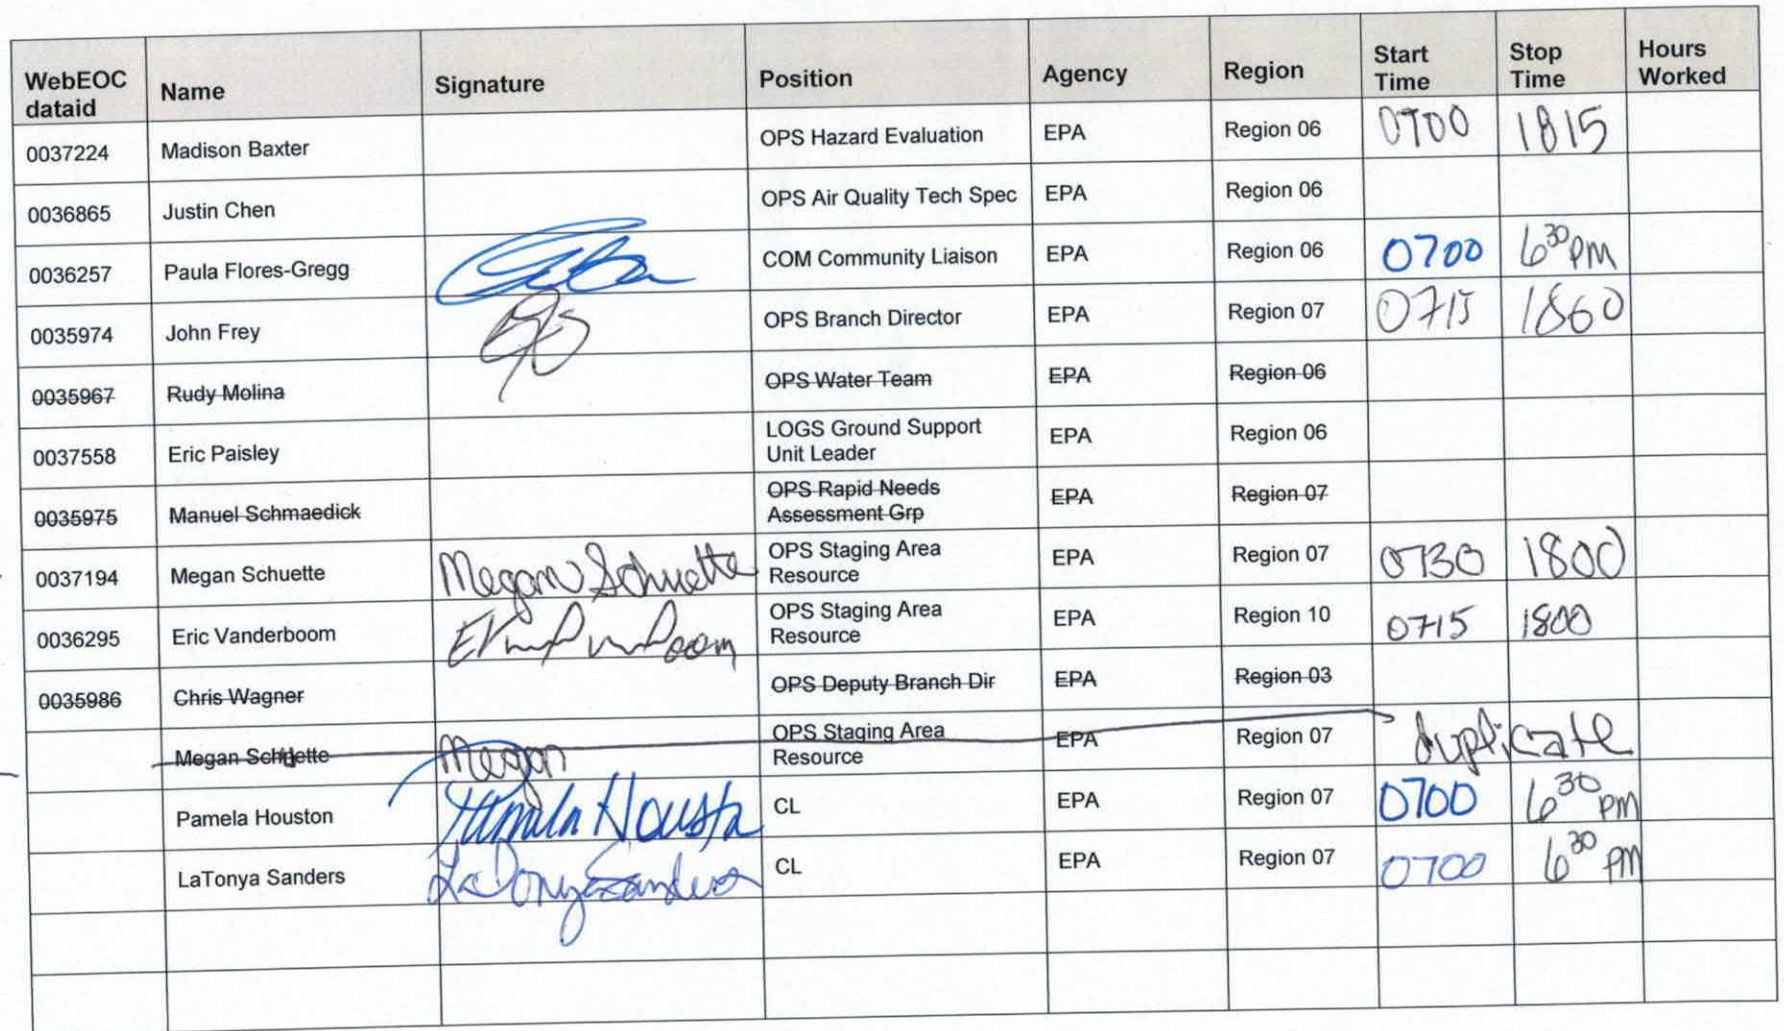 WebEOC dataid Name Signature Position Agency Region Start Time Stop Time Hours Worked
0037224 Madison Baxter OPS Hazard Evaluation EPA Region 06 0700 1815
0036865 Justin Chen OPS Air Quality Tech Spec EPA Region 06
0036257 Paula Flores-Gregg COM Community Liaison EPA Region 06 0700 6 30 pm
0035974 John Frey OPS Branch Director EPA Region 07 0715 1860
0035967 Rudy Molina OPS Water Team EPA Region 06
0037558 Eric Paisley LOGS Ground Support Unit Leader EPA Region 06
0035975 Manuel Schmaedick OPS Rapid Needs Assessment Grp EPA Region 07
0037194 Megan Schuette Megan Schuette OPS Staging Area Resource EPA Region 07 0730 1800
0036295 Eric Vanderboom OPS Staging Area Resource EPA Region 10 0715 1800
0035986 Chris Wagner OPS Deputy Branch Dir EPA Region 03
Megan Schuette Megan OPS Staging Area Resource EPA Region 07 duplicate
Pamela Houston Pamela Houston CL EPA Region 07 0700 6 30 pm
LaTonya Sanders LaTonya Sanders CL EPA Region 07 0700 6 30 pm